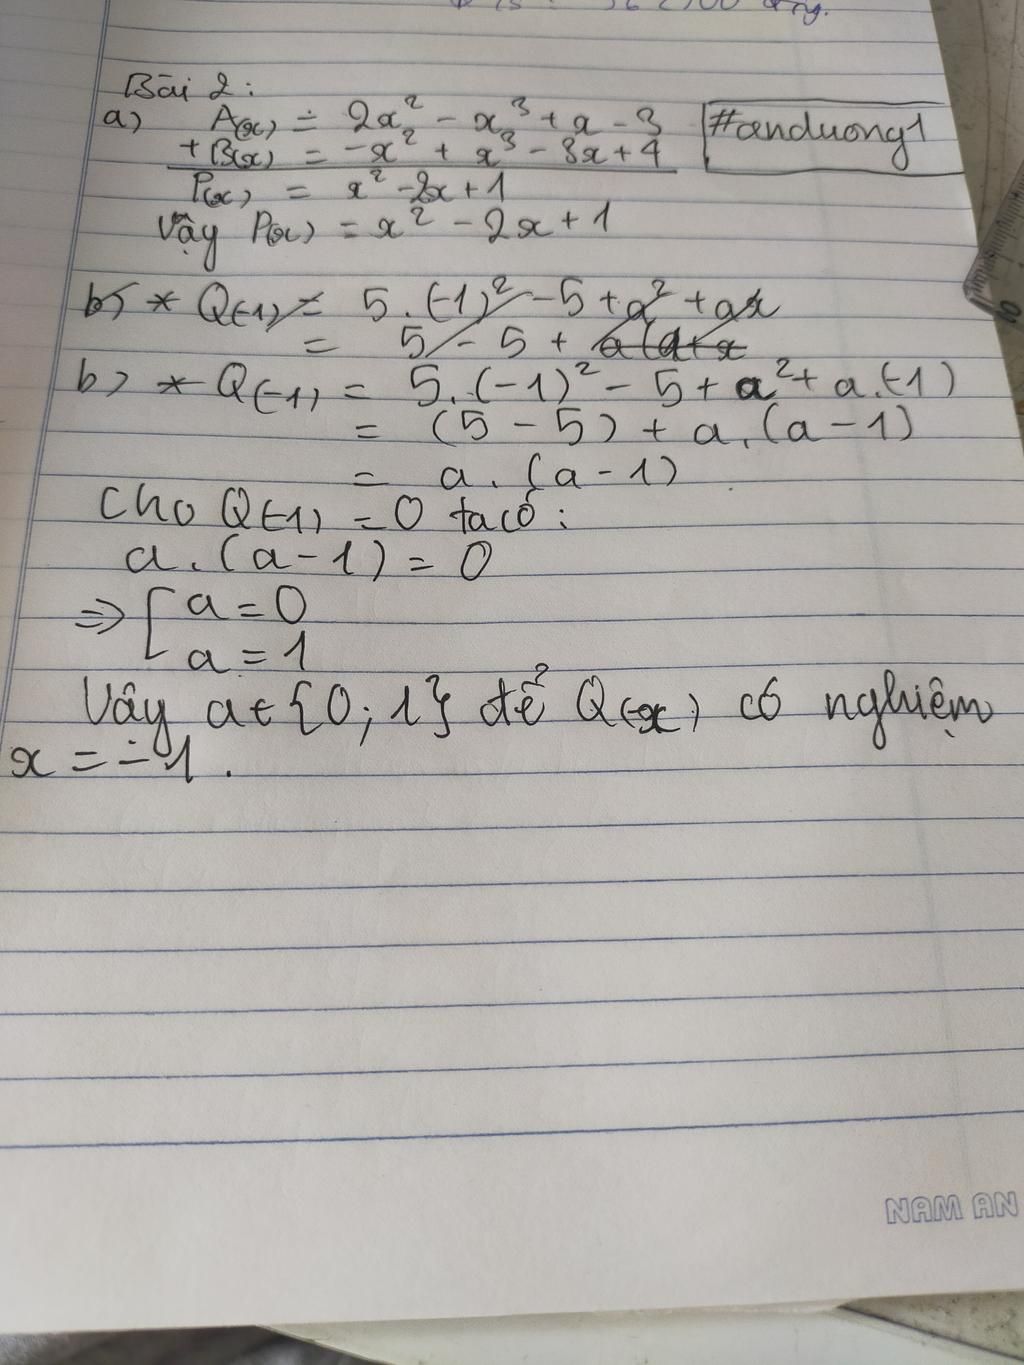 Bài 2:
a) A(x) = 2x² - x³ + x - 3
#anduong1
+ B(x) = -x² + x³ - 3x + 4
P(x) = x² - 2x + 1
Vậy P(x) = x² - 2x + 1
b) * Q(-1) = 5.(-1)² - 5 + a² + ax
= 5 - 5 + a(a+x
b) * Q(-1) = 5.(-1)² - 5 + a² + a.(-1)
= (5 - 5) + a.(a - 1)
= a.(a - 1)
Cho Q(-1) = 0 ta có:
a.(a - 1) = 0
⇒ [ a = 0
a = 1
Vậy a ∈ {0; 1} để Q(x) có nghiệm
x = -1.
NAM AN